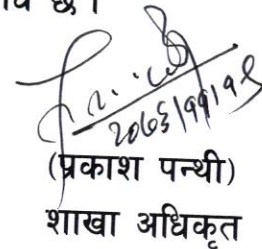 छ ।
२०७६।११।१९
(प्रकाश पन्थी)
शाखा अधिकृत